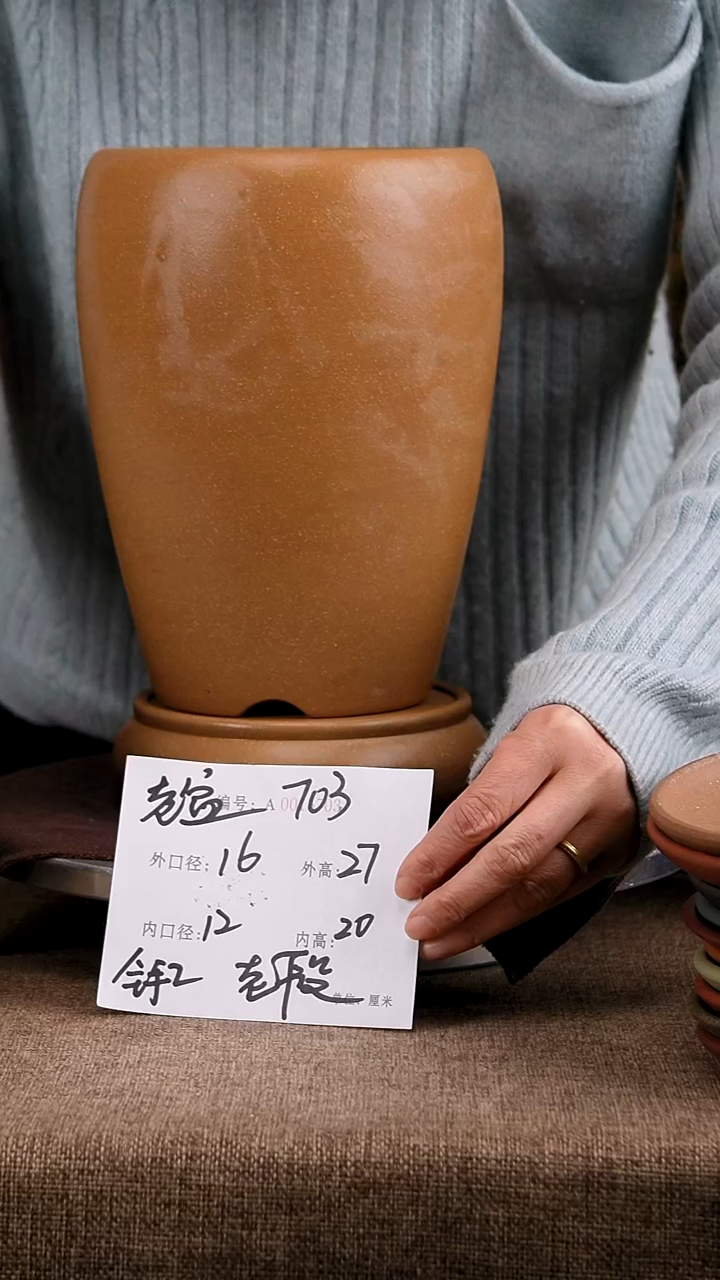 老盆 编号: A 703
外口径: 16 外高: 27
内口径: 12 内高: 20
全手工 老段 单位: 厘米